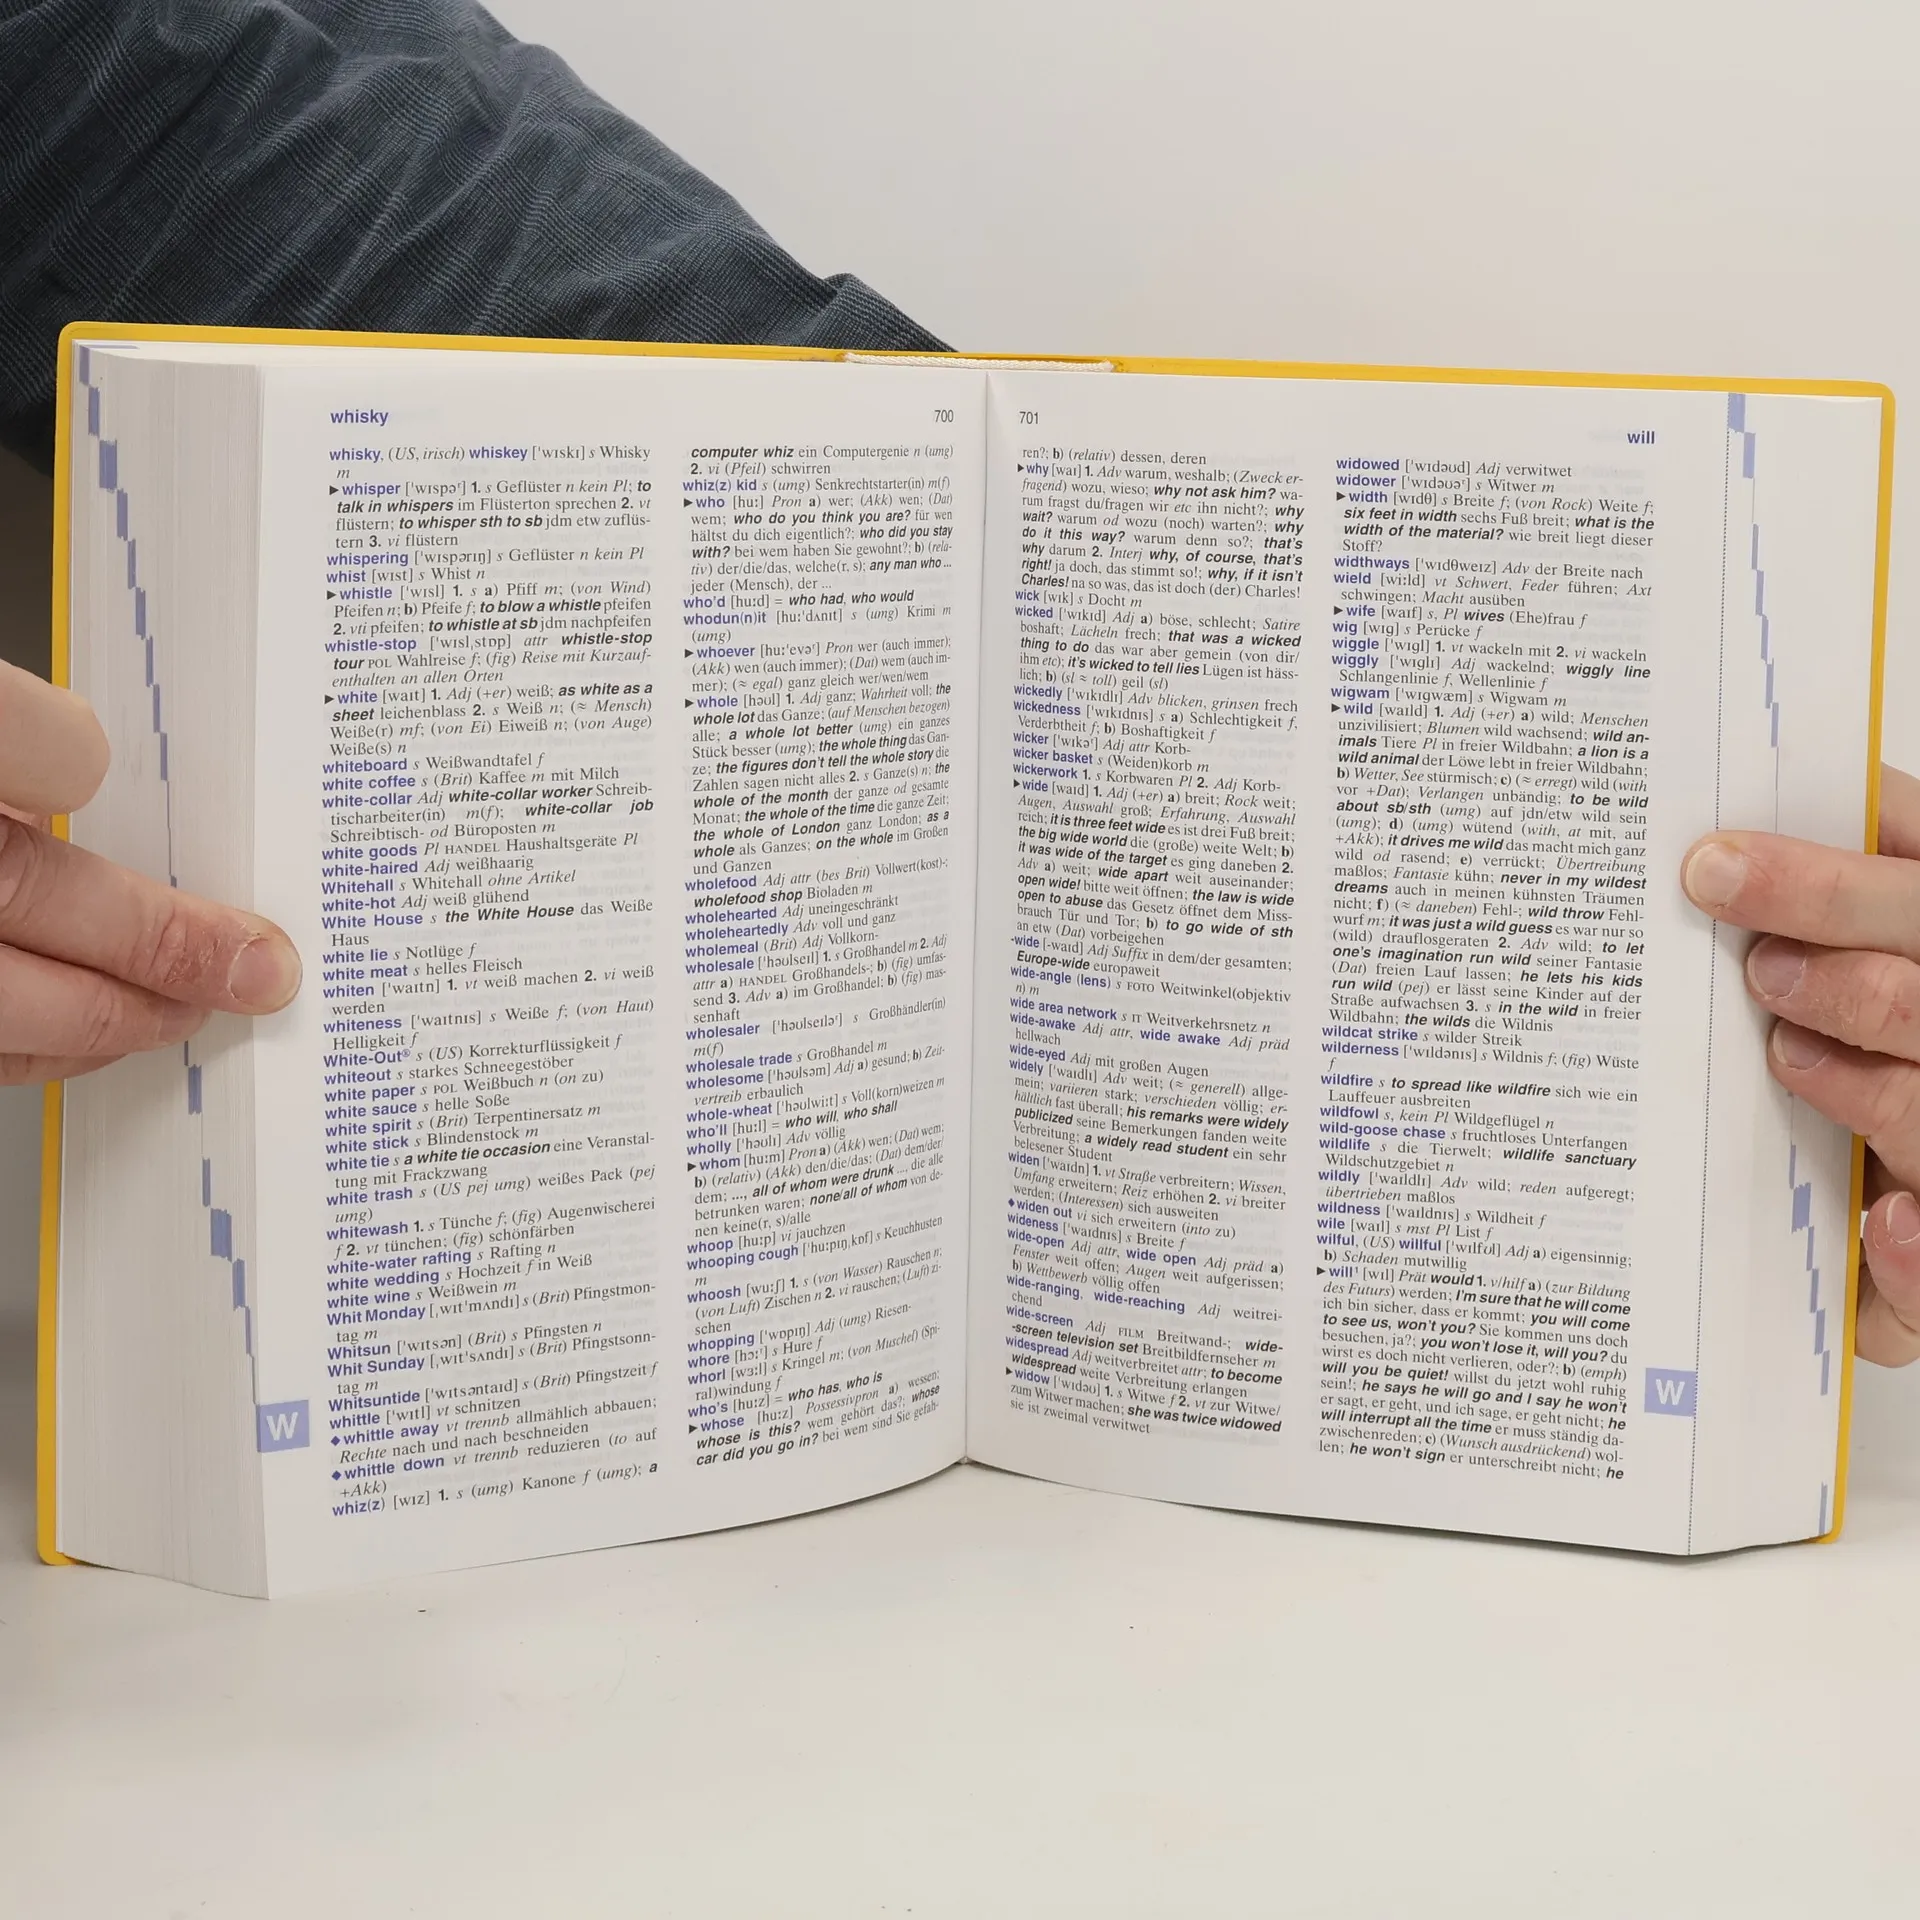 whisky
700
whisky, (US, irisch) whiskey ['wɪskɪ] s Whisky
m
▶whisper ['wɪspəʳ] 1. s Geflüster n kein Pl; to
talk in whispers im Flüsterton sprechen 2. vt
flüstern; to whisper sth to sb jdm etw zuflüs-
tern 3. vi flüstern
whispering ['wɪspərɪŋ] s Geflüster n kein Pl
whist [wɪst] s Whist n
▶whistle ['wɪsl] 1. s a) Pfiff m; (von Wind)
Pfeifen n; b) Pfeife f; to blow a whistle pfeifen
2. vti pfeifen; to whistle at sb jdm nachpfeifen
whistle-stop ['wɪslˌstɒp] attr whistle-stop
tour POL Wahlreise f; (fig) Reise mit Kurzauf-
enthalten an allen Orten
▶white [waɪt] 1. Adj (+er) weiß; as white as a
sheet leichenblass 2. s Weiß n; (≈ Mensch)
Weiße(r) mf; (von Ei) Eiweiß n; (von Auge)
Weiße(s) n
whiteboard s Weißwandtafel f
white coffee s (Brit) Kaffee m mit Milch
white-collar Adj white-collar worker Schreib-
tischarbeiter(in) m(f); white-collar job
Schreibtisch- od Büroposten m
white goods Pl HANDEL Haushaltsgeräte Pl
white-haired Adj weißhaarig
Whitehall s Whitehall ohne Artikel
white-hot Adj weiß glühend
White House s the White House das Weiße
Haus
white lie s Notlüge f
white meat s helles Fleisch
whiten ['waɪtn] 1. vt weiß machen 2. vi weiß
werden
whiteness ['waɪtnɪs] s Weiße f; (von Haut)
Helligkeit f
White-Out® s (US) Korrekturflüssigkeit f
whiteout s starkes Schneegestöber
white paper s POL Weißbuch n (on zu)
white sauce s helle Soße
white spirit s (Brit) Terpentinersatz m
white stick s Blindenstock m
white tie s a white tie occasion eine Veranstal-
tung mit Frackzwang
white trash s (US pej umg) weißes Pack (pej
umg)
whitewash 1. s Tünche f; (fig) Augenwischerei
f 2. vt tünchen; (fig) schönfärben
white-water rafting s Rafting n
white wedding s Hochzeit f in Weiß
white wine s Weißwein m
Whit Monday [ˌwɪt'mʌndɪ] s (Brit) Pfingstmon-
tag m
Whitsun ['wɪtsən] (Brit) s Pfingsten n
Whit Sunday [ˌwɪt'sʌndɪ] s (Brit) Pfingstsonn-
tag m
Whitsuntide ['wɪtsəntaɪd] s (Brit) Pfingstzeit f
whittle ['wɪtl] vt schnitzen
◆whittle away vt trennb allmählich abbauen;
Rechte nach und nach beschneiden
◆whittle down vt trennb reduzieren (to auf
+Akk)
whiz(z) [wɪz] 1. s (umg) Kanone f (umg); a
W
computer whiz ein Computergenie n (umg)
2. vi (Pfeil) schwirren
whiz(z) kid s (umg) Senkrechtstarter(in) m(f)
▶who [huː] Pron a) wer; (Akk) wen; (Dat)
wem; who do you think you are? für wen
hältst du dich eigentlich?; who did you stay
with? bei wem haben Sie gewohnt?; b) (rela-
tiv) der/die/das, welche(r, s); any man who ...
jeder (Mensch), der ...
who'd [huːd] = who had, who would
whodun(n)it [huː'dʌnɪt] s (umg) Krimi m
(umg)
▶whoever [huː'evəʳ] Pron wer (auch immer);
(Akk) wen (auch immer); (Dat) wem (auch im-
mer); (≈ egal) ganz gleich wer/wen/wem
▶whole [həʊl] 1. Adj ganz; Wahrheit voll; the
whole lot das Ganze; (auf Menschen bezogen)
alle; a whole lot better (umg) ein ganzes
Stück besser (umg); the whole thing das Gan-
ze; the figures don't tell the whole story die
Zahlen sagen nicht alles 2. s Ganze(s) n; the
whole of the month der ganze od gesamte
Monat; the whole of the time die ganze Zeit;
the whole of London ganz London; as a
whole als Ganzes; on the whole im Großen
und Ganzen
wholefood Adj attr (bes Brit) Vollwert(kost)-;
wholefood shop Bioladen m
wholehearted Adj uneingeschränkt
wholeheartedly Adv voll und ganz
wholemeal (Brit) Adj Vollkorn-
wholesale ['həʊlseɪl] 1. s Großhandel m 2. Adj
attr a) HANDEL Großhandels-; b) (fig) umfas-
send 3. Adv a) im Großhandel; b) (fig) mas-
senhaft
wholesaler ['həʊlseɪləʳ] s Großhändler(in)
m(f)
wholesale trade s Großhandel m
wholesome ['həʊlsəm] Adj a) gesund; b) Zeit-
vertreib erbaulich
whole-wheat ['həʊlwiːt] s Voll(korn)weizen m
who'll [huːl] = who will, who shall
wholly ['həʊlɪ] Adv völlig
▶whom [huːm] Pron a) (Akk) wen; (Dat) wem;
b) (relativ) (Akk) den/die/das; (Dat) dem/der/
dem; ..., all of whom were drunk ..., die alle
betrunken waren; none/all of whom von de-
nen keine(r, s)/alle
whoop [huːp] vi jauchzen
whooping cough ['huːpɪŋˌkɒf] s Keuchhusten
m
whoosh [wuːʃ] 1. s (von Wasser) Rauschen n;
(von Luft) Zischen n 2. vi rauschen; (Luft) zi-
schen
whopping ['wɒpɪŋ] Adj (umg) Riesen-
whore [hɔːʳ] s Hure f
whorl [wɜːl] s Kringel m; (von Muschel) (Spi-
ral)windung f
who's [huːz] = who has, who is
▶whose [huːz] Possessivpron a) wessen;
whose is this? wem gehört das?; whose
car did you go in? bei wem sind Sie gefah-
701
will
ren?; b) (relativ) dessen, deren
▶why [waɪ] 1. Adv warum, weshalb; (Zweck er-
fragend) wozu, wieso; why not ask him? wa-
rum fragst du/fragen wir etc ihn nicht?; why
wait? warum od wozu (noch) warten?; why
do it this way? warum denn so?; that's
why darum 2. Interj why, of course, that's
right! ja doch, das stimmt so!; why, if it isn't
Charles! na so was, das ist doch (der) Charles!
wick [wɪk] s Docht m
wicked ['wɪkɪd] Adj a) böse, schlecht; Satire
boshaft; Lächeln frech; that was a wicked
thing to do das war aber gemein (von dir/
ihm etc); it's wicked to tell lies Lügen ist häss-
lich; b) (sl ≈ toll) geil (sl)
wickedly ['wɪkɪdlɪ] Adv blicken, grinsen frech
wickedness ['wɪkɪdnɪs] s a) Schlechtigkeit f,
Verderbtheit f; b) Boshaftigkeit f
wicker ['wɪkəʳ] Adj attr Korb-
wicker basket s (Weiden)korb m
wickerwork 1. s Korbwaren Pl 2. Adj Korb-
▶wide [waɪd] 1. Adj (+er) a) breit; Rock weit;
Augen, Auswahl groß; Erfahrung, Auswahl
reich; it is three feet wide es ist drei Fuß breit;
the big wide world die (große) weite Welt; b)
it was wide of the target es ging daneben 2.
Adv a) weit; wide apart weit auseinander;
open wide! bitte weit öffnen; the law is wide
open to abuse das Gesetz öffnet dem Miss-
brauch Tür und Tor; b) to go wide of sth
an etw (Dat) vorbeigehen
-wide [-waɪd] Adj Suffix in dem/der gesamten;
Europe-wide europaweit
wide-angle (lens) s FOTO Weitwinkel(objektiv
n) m
wide area network s IT Weitverkehrsnetz n
wide-awake Adj attr, wide awake Adj präd
hellwach
wide-eyed Adj mit großen Augen
widely ['waɪdlɪ] Adv weit; (≈ generell) allge-
mein; variieren stark; verschieden völlig; er-
hältlich fast überall; his remarks were widely
publicized seine Bemerkungen fanden weite
Verbreitung; a widely read student ein sehr
belesener Student
widen ['waɪdn] 1. vt Straße verbreitern; Wissen,
Umfang erweitern; Reiz erhöhen 2. vi breiter
werden; (Interessen) sich ausweiten
◆widen out vi sich erweitern (into zu)
wideness ['waɪdnɪs] s Breite f
wide-open Adj attr, wide open Adj präd a)
Fenster weit offen; Augen weit aufgerissen;
b) Wettbewerb völlig offen
wide-ranging, wide-reaching Adj weitrei-
chend
wide-screen Adj FILM Breitwand-; wide-
-screen television set Breitbildfernseher m
widespread Adj weitverbreitet attr; to become
widespread weite Verbreitung erlangen
▶widow ['wɪdəʊ] 1. s Witwe f 2. vt zur Witwe/
zum Witwer machen; she was twice widowed
sie ist zweimal verwitwet
widowed ['wɪdəʊd] Adj verwitwet
widower ['wɪdəʊəʳ] s Witwer m
▶width [wɪdθ] s Breite f; (von Rock) Weite f;
six feet in width sechs Fuß breit; what is the
width of the material? wie breit liegt dieser
Stoff?
widthways ['wɪdθweɪz] Adv der Breite nach
wield [wiːld] vt Schwert, Feder führen; Axt
schwingen; Macht ausüben
▶wife [waɪf] s, Pl wives (Ehe)frau f
wig [wɪg] s Perücke f
wiggle ['wɪgl] 1. vt wackeln mit 2. vi wackeln
wiggly ['wɪglɪ] Adj wackelnd; wiggly line
Schlangenlinie f, Wellenlinie f
wigwam ['wɪgwæm] s Wigwam m
▶wild [waɪld] 1. Adj (+er) a) wild; Menschen
unzivilisiert; Blumen wild wachsend; wild an-
imals Tiere Pl in freier Wildbahn; a lion is a
wild animal der Löwe lebt in freier Wildbahn;
b) Wetter, See stürmisch; c) (≈ erregt) wild (with
vor +Dat); Verlangen unbändig; to be wild
about sb/sth (umg) auf jdn/etw wild sein
(umg); d) (umg) wütend (with, at mit, auf
+Akk); it drives me wild das macht mich ganz
wild od rasend; e) verrückt; Übertreibung
maßlos; Fantasie kühn; never in my wildest
dreams auch in meinen kühnsten Träumen
nicht; f) (≈ daneben) Fehl-; wild throw Fehl-
wurf m; it was just a wild guess es war nur so
(wild) drauflosgeraten 2. Adv wild; to let
one's imagination run wild seiner Fantasie
(Dat) freien Lauf lassen; he lets his kids
run wild (pej) er lässt seine Kinder auf der
Straße aufwachsen 3. s in the wild in freier
Wildbahn; the wilds die Wildnis
wildcat strike s wilder Streik
wilderness ['wɪldənɪs] s Wildnis f; (fig) Wüste
f
wildfire s to spread like wildfire sich wie ein
Lauffeuer ausbreiten
wildfowl s, kein Pl Wildgeflügel n
wild-goose chase s fruchtloses Unterfangen
wildlife s die Tierwelt; wildlife sanctuary
Wildschutzgebiet n
wildly ['waɪldlɪ] Adv wild; reden aufgeregt;
übertrieben maßlos
wildness ['waɪldnɪs] s Wildheit f
wile [waɪl] s mst Pl List f
wilful, (US) willful ['wɪlfʊl] Adj a) eigensinnig;
b) Schaden mutwillig
▶will¹ [wɪl] Prät would 1. v/hilf a) (zur Bildung
des Futurs) werden; I'm sure that he will come
ich bin sicher, dass er kommt; you will come
to see us, won't you? Sie kommen uns doch
besuchen, ja?; you won't lose it, will you? du
wirst es doch nicht verlieren, oder?; b) (emph)
will you be quiet! willst du jetzt wohl ruhig
sein!; he says he will go and I say he won't
er sagt, er geht, und ich sage, er geht nicht; he
will interrupt all the time er muss ständig da-
zwischenreden; c) (Wunsch ausdrückend) wol-
len; he won't sign er unterschreibt nicht; he
W